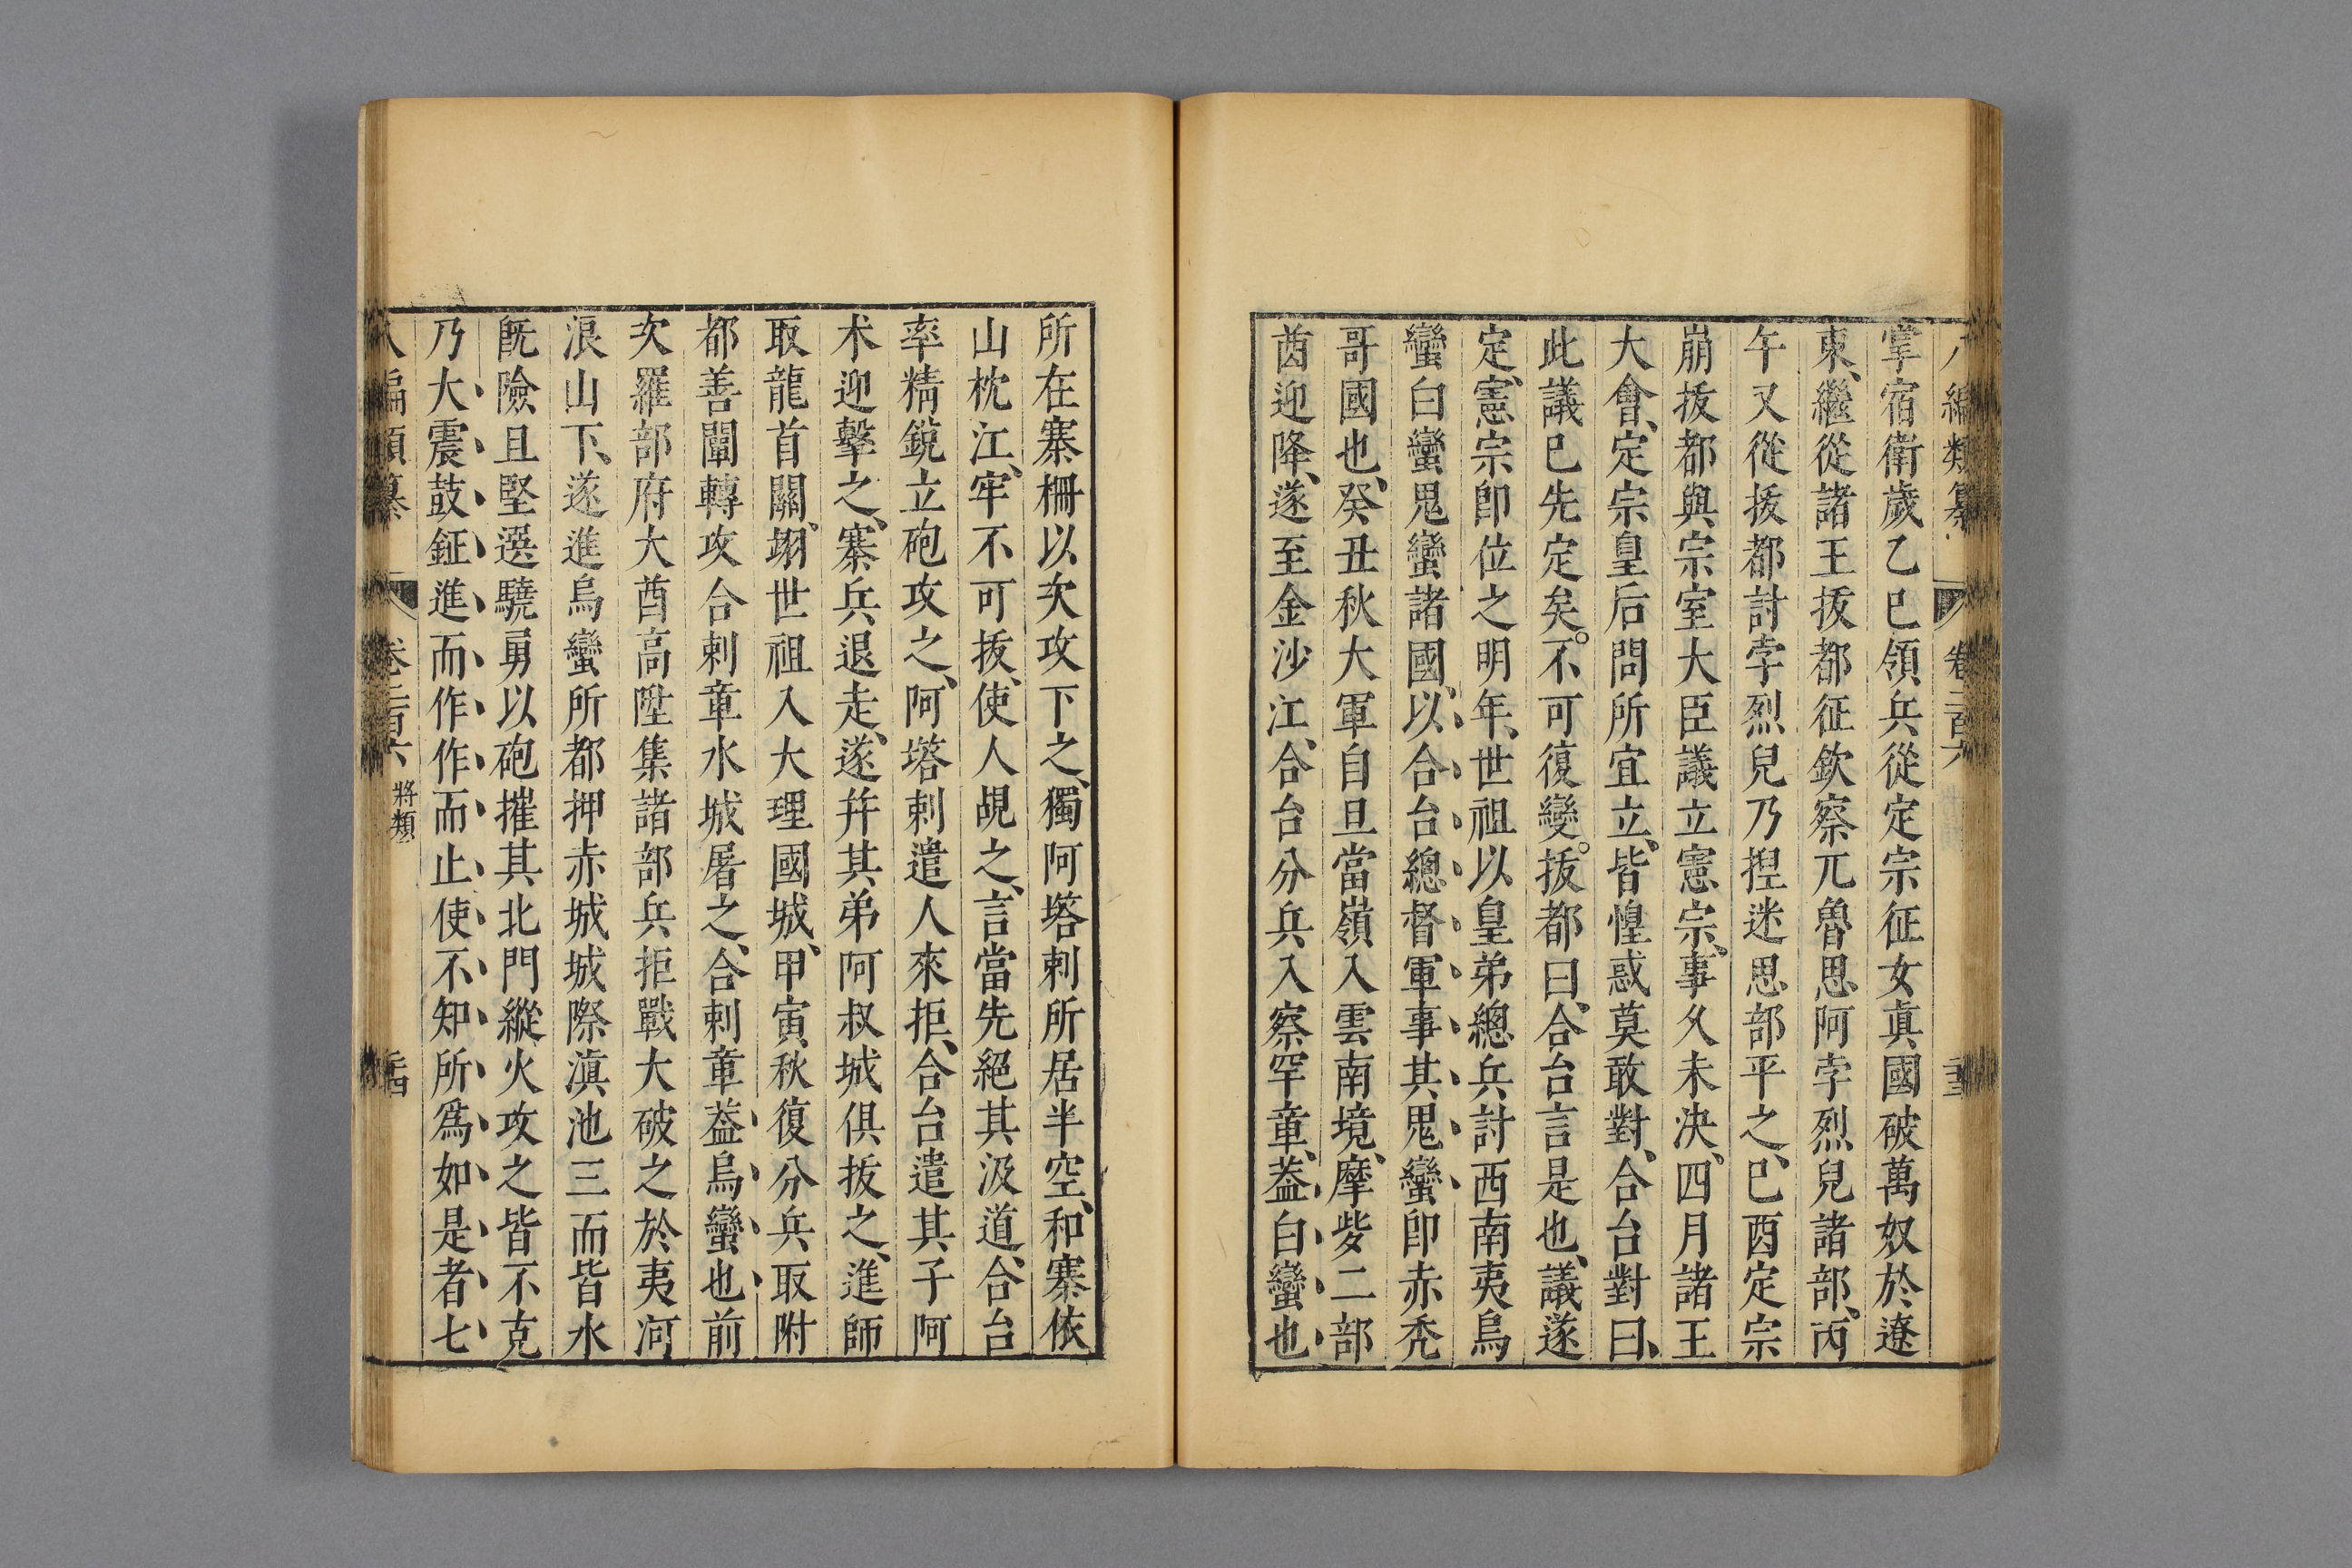 八編類纂 卷二百六 二十三
掌宿衛歲乙巳領兵從定宗征女真國破萬奴於遼
東、繼從諸王拔都征欽察兀魯思阿孛烈兒諸部、丙
午又從拔都討孛烈兒乃捏迷思部平之、巳酉定宗
崩拔都與宗室大臣議立憲宗、事久未決、四月諸王
大會、定宗皇后問所宜立、皆惶惑莫敢對、合台對曰、
此議巳先定矣。不可復變。拔都曰、合台言是也、議遂
定、憲宗卽位之明年、世祖以皇弟總兵討西南夷烏
蠻白蠻鬼蠻諸國、以合台總督軍事其鬼蠻卽赤禿
哥國也、癸丑秋大軍自旦當嶺入雲南境、摩㱔二部
酋迎降、遂至金沙江、合台分兵入察罕章、葢白蠻也、
所在寨柵以次攻下之、獨阿塔剌所居半空、和寨依
山枕江、牢不可拔、使人覘之、言當先絕其汲道、合台
率精銳立砲攻之、阿塔剌遣人來拒、合台遣其子阿
术迎擊之、寨兵退走、遂幷其弟阿叔城俱拔之、進師
取龍首關、翊世祖入大理國城、甲寅秋復分兵取附
都善闡轉攻合剌章水城屠之、合剌章葢烏蠻也前
次羅部府大酋高陞集諸部兵拒戰大破之於夷河
浪山下、遂進烏蠻所都押赤城城際滇池三面皆水
旣險且堅選驍勇以砲摧其北門縱火攻之皆不克
乃大震鼓鉦進而作作而止使不知所爲如是者七
八編類纂 卷二百六 將類 二十四